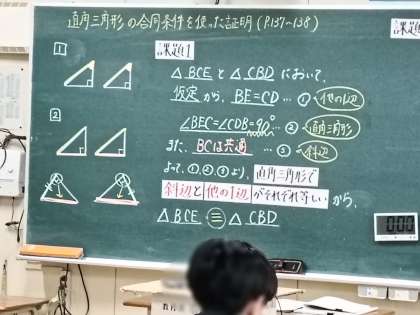 直角三角形の合同条件を使った証明(P.137~138)
課題1
△BCEと△CBDにおいて、
仮定から、BE=CD…①
他の1辺
∠BEC=∠CDB=90°…②
直角三角形
また、BCは共通…③
斜辺
よって、①,②,③より、直角三角形で
斜辺と他の1辺がそれぞれ等しいから、
△BCE≡△CBD
1
2
課題